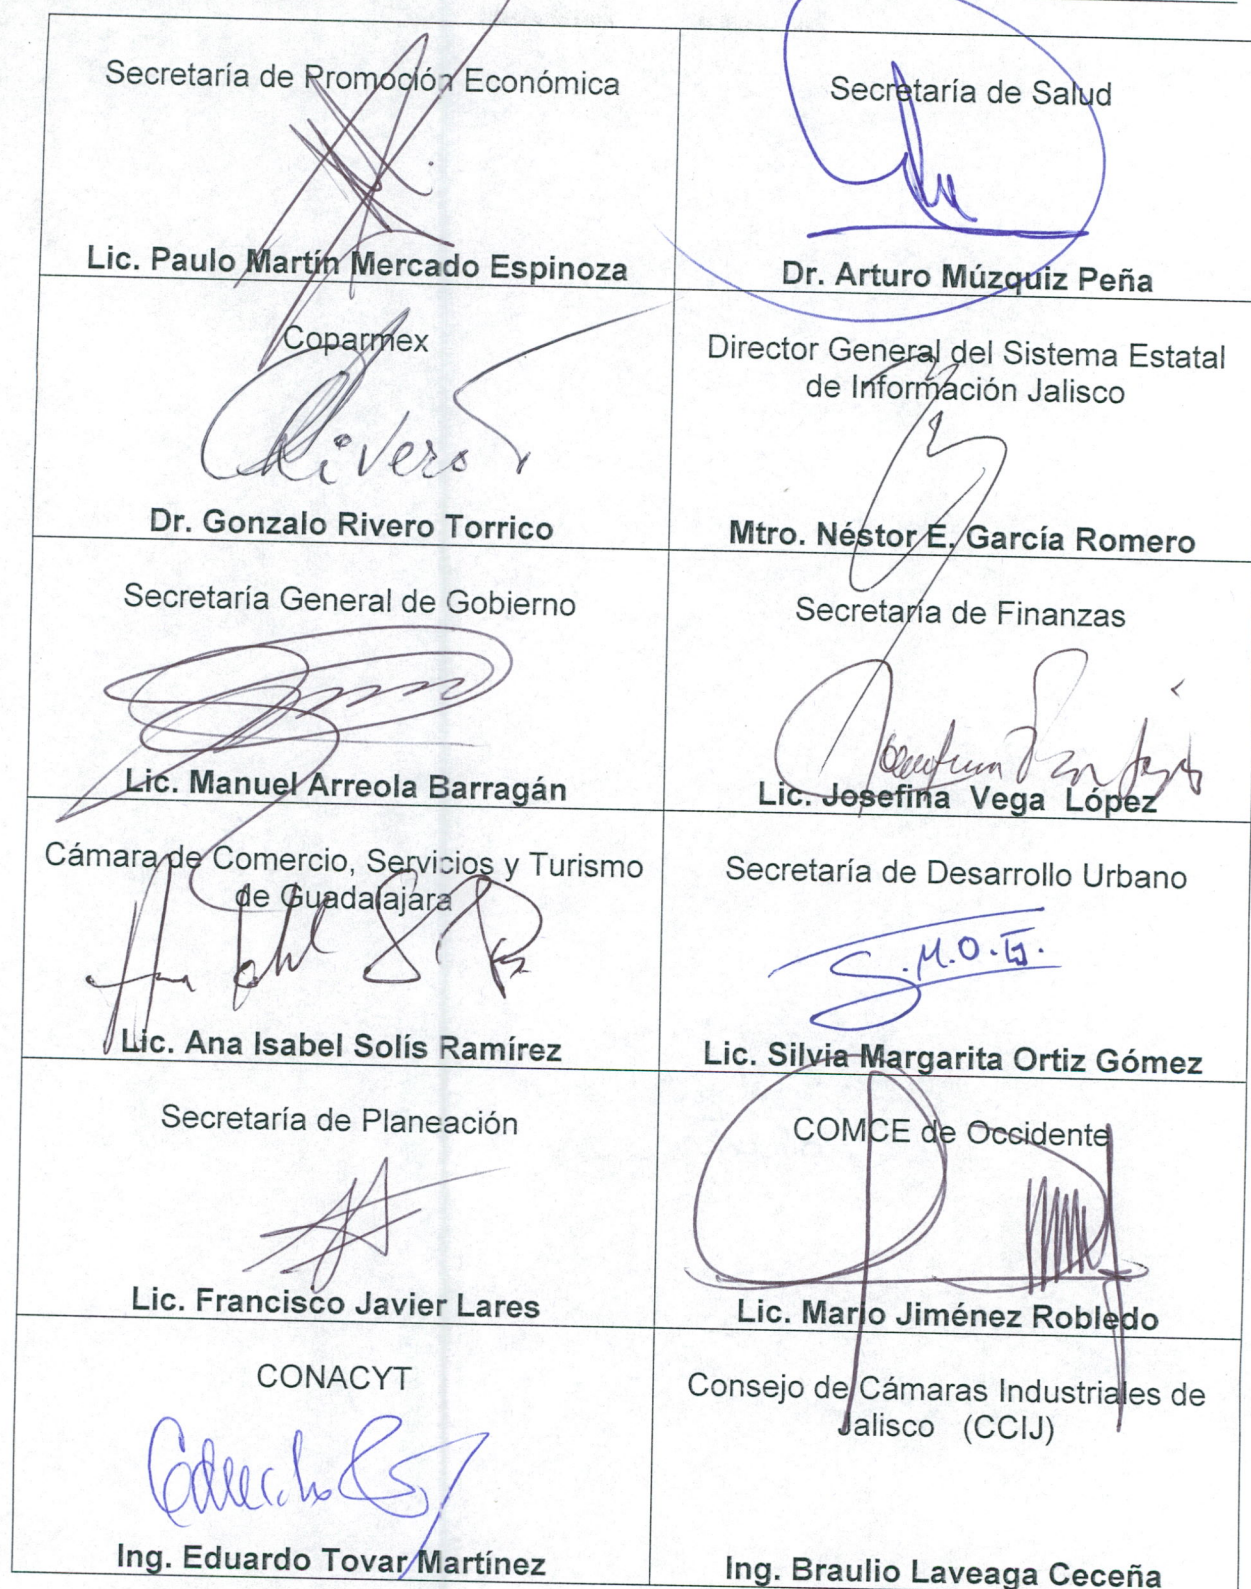 Secretaría de Promoción Económica
Lic. Paulo Martín Mercado Espinoza
Secretaría de Salud
Dr. Arturo Múzquiz Peña
Coparmex
Rivero
Dr. Gonzalo Rivero Torrico
Director General del Sistema Estatal
de Información Jalisco
Mtro. Néstor E. García Romero
Secretaría General de Gobierno
Lic. Manuel Arreola Barragán
Secretaría de Finanzas
Lic. Josefina Vega López
Cámara de Comercio, Servicios y Turismo
de Guadalajara
Lic. Ana Isabel Solís Ramírez
Secretaría de Desarrollo Urbano
S.M.O.G.
Lic. Silvia Margarita Ortiz Gómez
Secretaría de Planeación
Lic. Francisco Javier Lares
COMCE de Occidente
Lic. Mario Jiménez Robledo
CONACYT
Ing. Eduardo Tovar Martínez
Consejo de Cámaras Industriales de
Jalisco (CCIJ)
Ing. Braulio Laveaga Ceceña